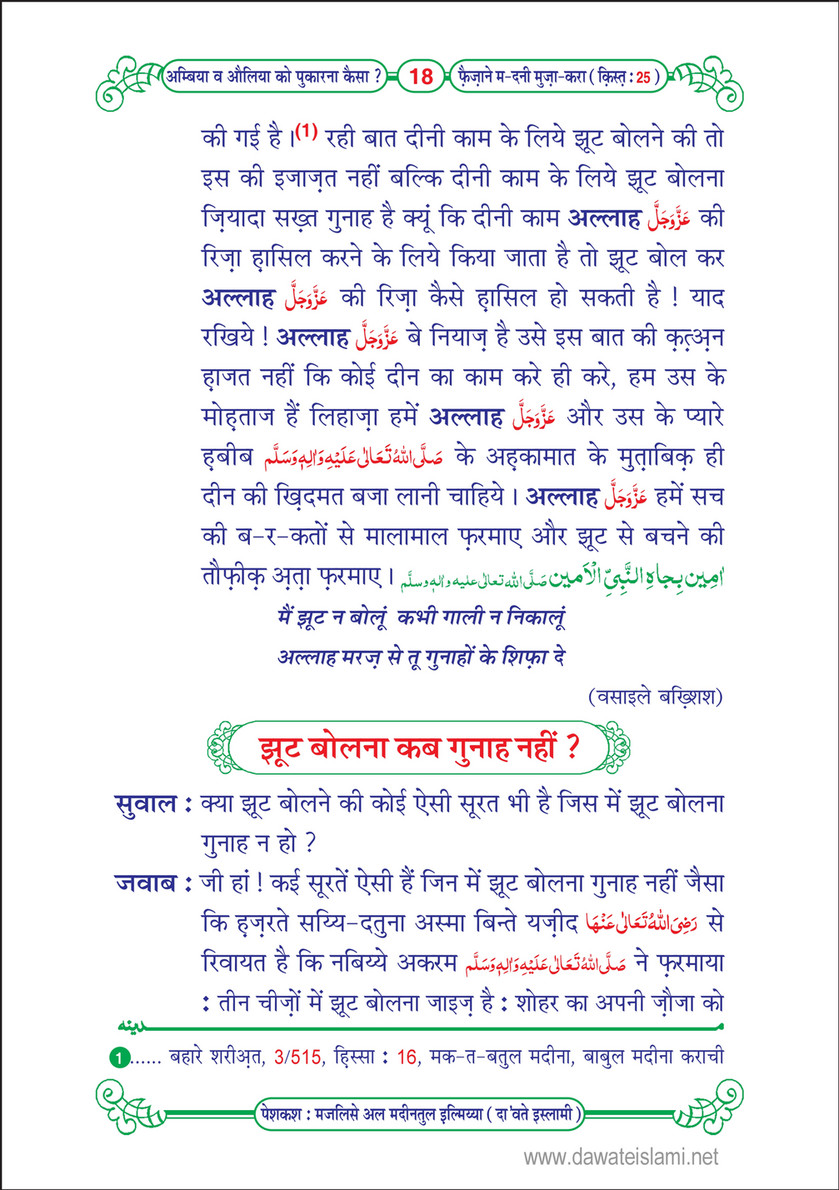 अम्बिया व औलिया को पुकारना कैसा ?
18
फ़ैज़ाने म-दनी मुज़ा-करा ( क़िस्त़ : 25 )
की गई है ।(1) रही बात दीनी काम के लिये झूट बोलने की तो
इस की इजाज़त नहीं बल्कि दीनी काम के लिये झूट बोलना
ज़ियादा सख़्त गुनाह है क्यूं कि दीनी काम अल्लाह عَزَّوَجَلَّ की
रिज़ा ह़ासिल करने के लिये किया जाता है तो झूट बोल कर
अल्लाह عَزَّوَجَلَّ की रिज़ा कैसे ह़ासिल हो सकती है ! याद
रखिये ! अल्लाह عَزَّوَجَلَّ बे नियाज़ है उसे इस बात की क़त़्अ़न
ह़ाजत नहीं कि कोई दीन का काम करे ही करे, हम उस के
मोह़्ताज हैं लिहाज़ा हमें अल्लाह عَزَّوَجَلَّ और उस के प्यारे
ह़बीब صَلَّى اللهُ تَعَالٰى عَلَيْهِ وَاٰلِهٖ وَسَلَّم के अह़कामात के मुत़ाबिक़ ही
दीन की ख़िदमत बजा लानी चाहिये । अल्लाह عَزَّوَجَلَّ हमें सच
की ब-र-कतों से मालामाल फ़रमाए और झूट से बचने की
तौफ़ीक़ अ़त़ा फ़रमाए । اٰمِين بِجَاہِ النَّبِيِّ الْاَمين صَلَّى الله تعالى عليه واٰلهٖ وسلَّم
मैं झूट न बोलूं कभी गाली न निकालूं
अल्लाह मरज़ से तू गुनाहों के शिफ़ा दे
(वसाइले बख़्शिश)
झूट बोलना कब गुनाह नहीं ?
सुवाल : क्या झूट बोलने की कोई ऐसी सूरत भी है जिस में झूट बोलना
गुनाह न हो ?
जवाब : जी हां ! कई सूरतें ऐसी हैं जिन में झूट बोलना गुनाह नहीं जैसा
कि ह़ज़रते सय्यि-दतुना अस्मा बिन्ते यज़ीद رَضِىَ اللهُ تَعَالٰى عَنْهَا से
रिवायत है कि नबिय्ये अकरम صَلَّى اللهُ تَعَالٰى عَلَيْهِ وَاٰلِهٖ وَسَلَّم ने फ़रमाया
: तीन चीज़ों में झूट बोलना जाइज़ है : शोहर का अपनी ज़ौजा को
مـــدينه
1...... बहारे शरीअ़त, 3/515, ह़िस्सा : 16, मक-त-बतुल मदीना, बाबुल मदीना कराची
पेशकश : मजलिसे अल मदीनतुल इल्मिय्या ( दा'वते इस्लामी )
www.dawateislami.net